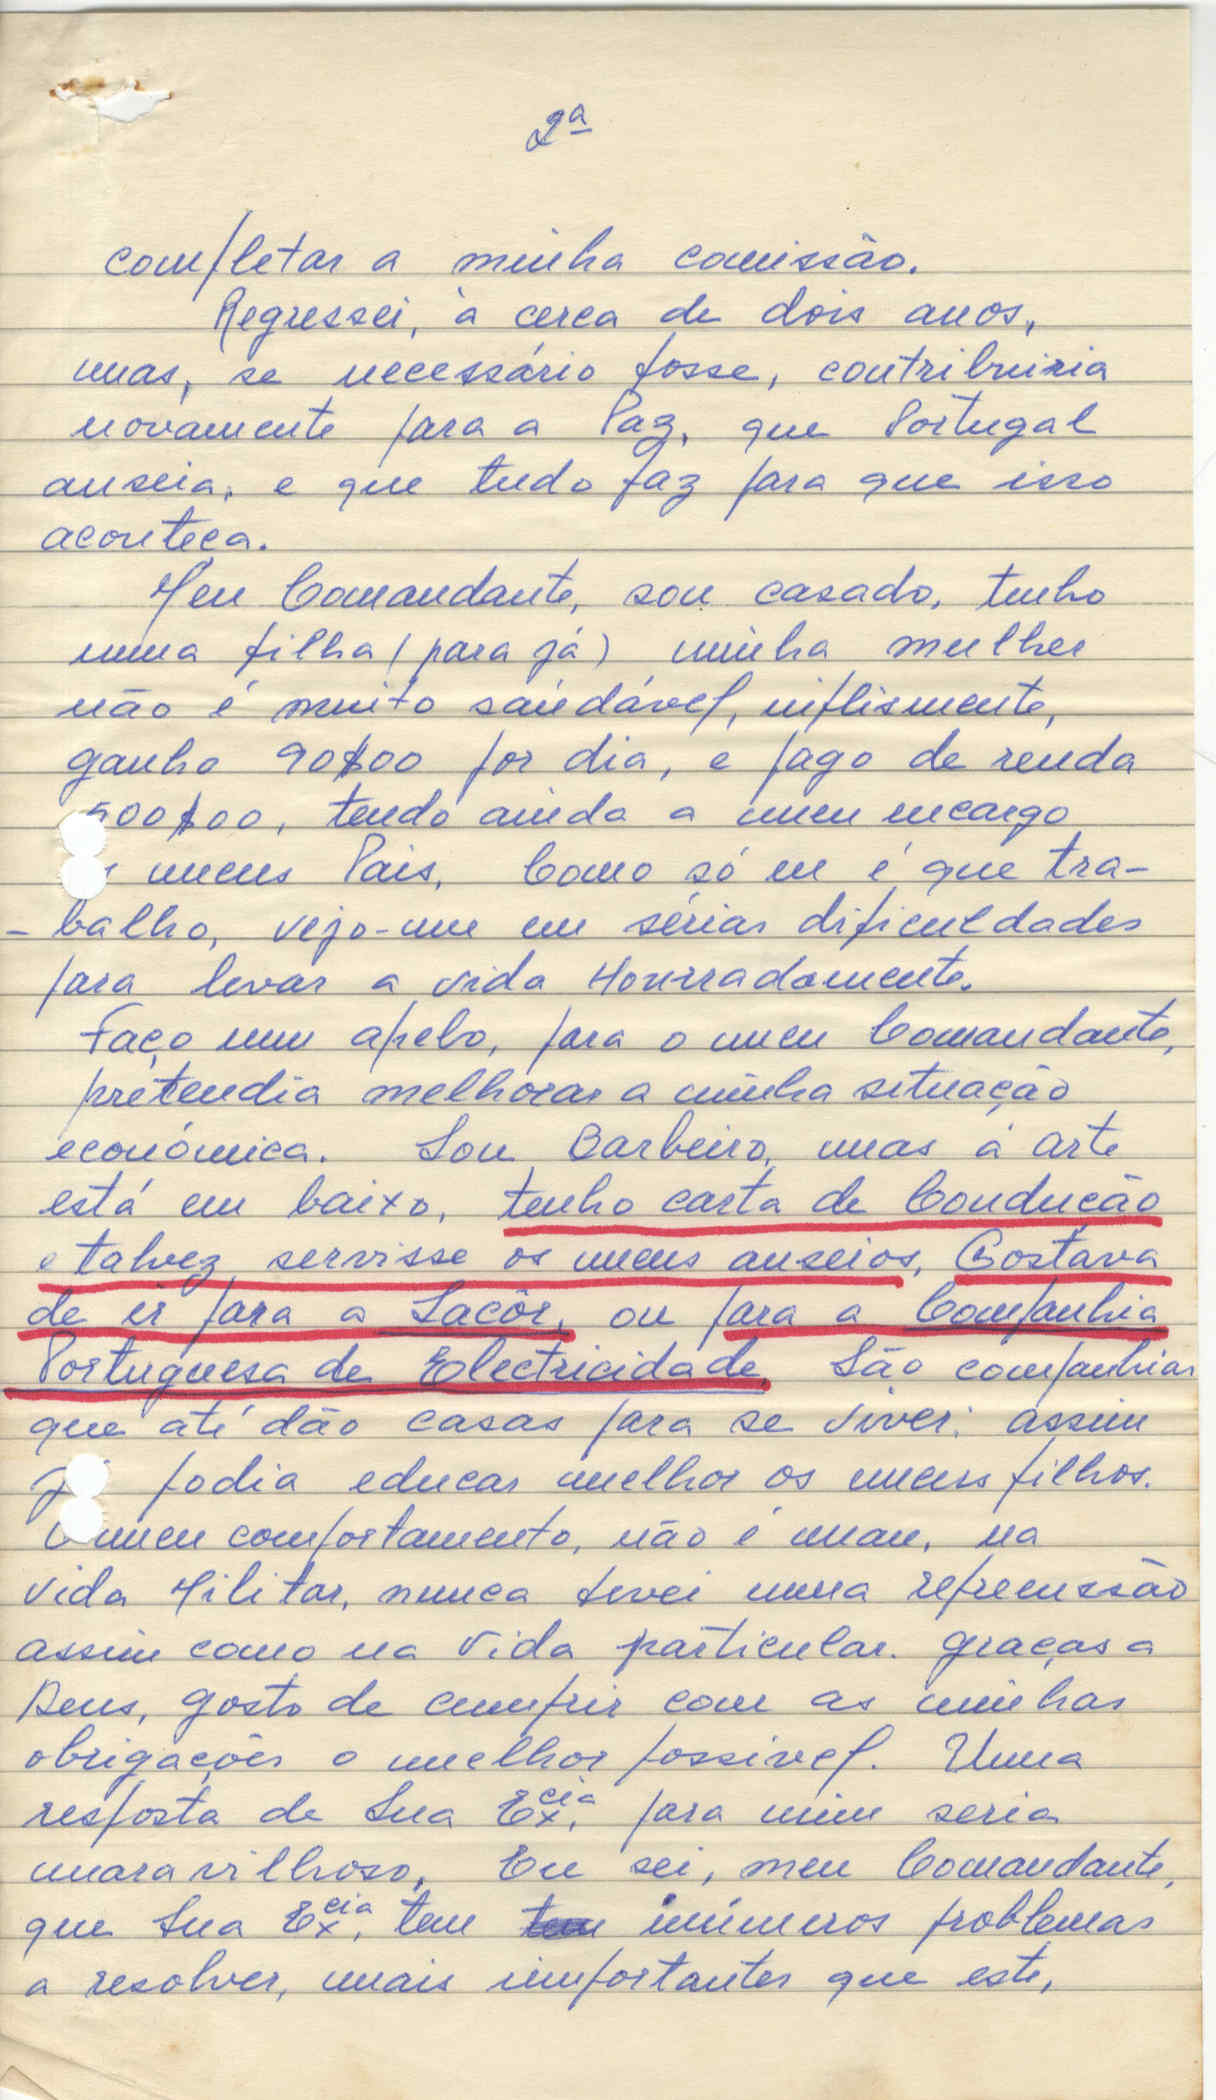 2ª
completar a minha comissão.
Regressei, à cerca de dois anos,
mas, se necessário fosse, contribuiria
novamente para a Paz, que Portugal
anseia, e que tudo faz para que isso
aconteça.
Meu Comandante, sou casado, tenho
uma filha (para já) minha mulher
não é muito saúdável, inflismente,
ganho 90$00 por dia, e pago de renda
500$00, tendo ainda a meu encargo
meus Pais. Como só eu é que tra-
-balho, vejo-me em sérias dificuldades
para levar a vida Honrradamente.
Faço um apelo, para o meu Comandante,
pretendia melhorar a minha situação
económica. Sou Barbeiro, mas a arte
está em baixo, tenho carta de Condução
e talvez servisse os meus anseios, Gostava
de ir para a Sacôr, ou para a Companhia
Portuguesa de Electricidade. São companhias
que até dão casas para se viver; assim
podia educar melhor os meus filhos.
O meu comportamento, não é mau, na
vida Militar, nunca tivei uma repreenssão
assim como na vida particular. graças a
Deus, gosto de cumprir com as minhas
obrigações o melhor possivel. Uma
resposta de Sua Excia, para mim seria
maravilhoso, Eu sei, meu Comandante,
que Sua Excia, tem inúmeros problemas
a resolver, mais importantes que este,